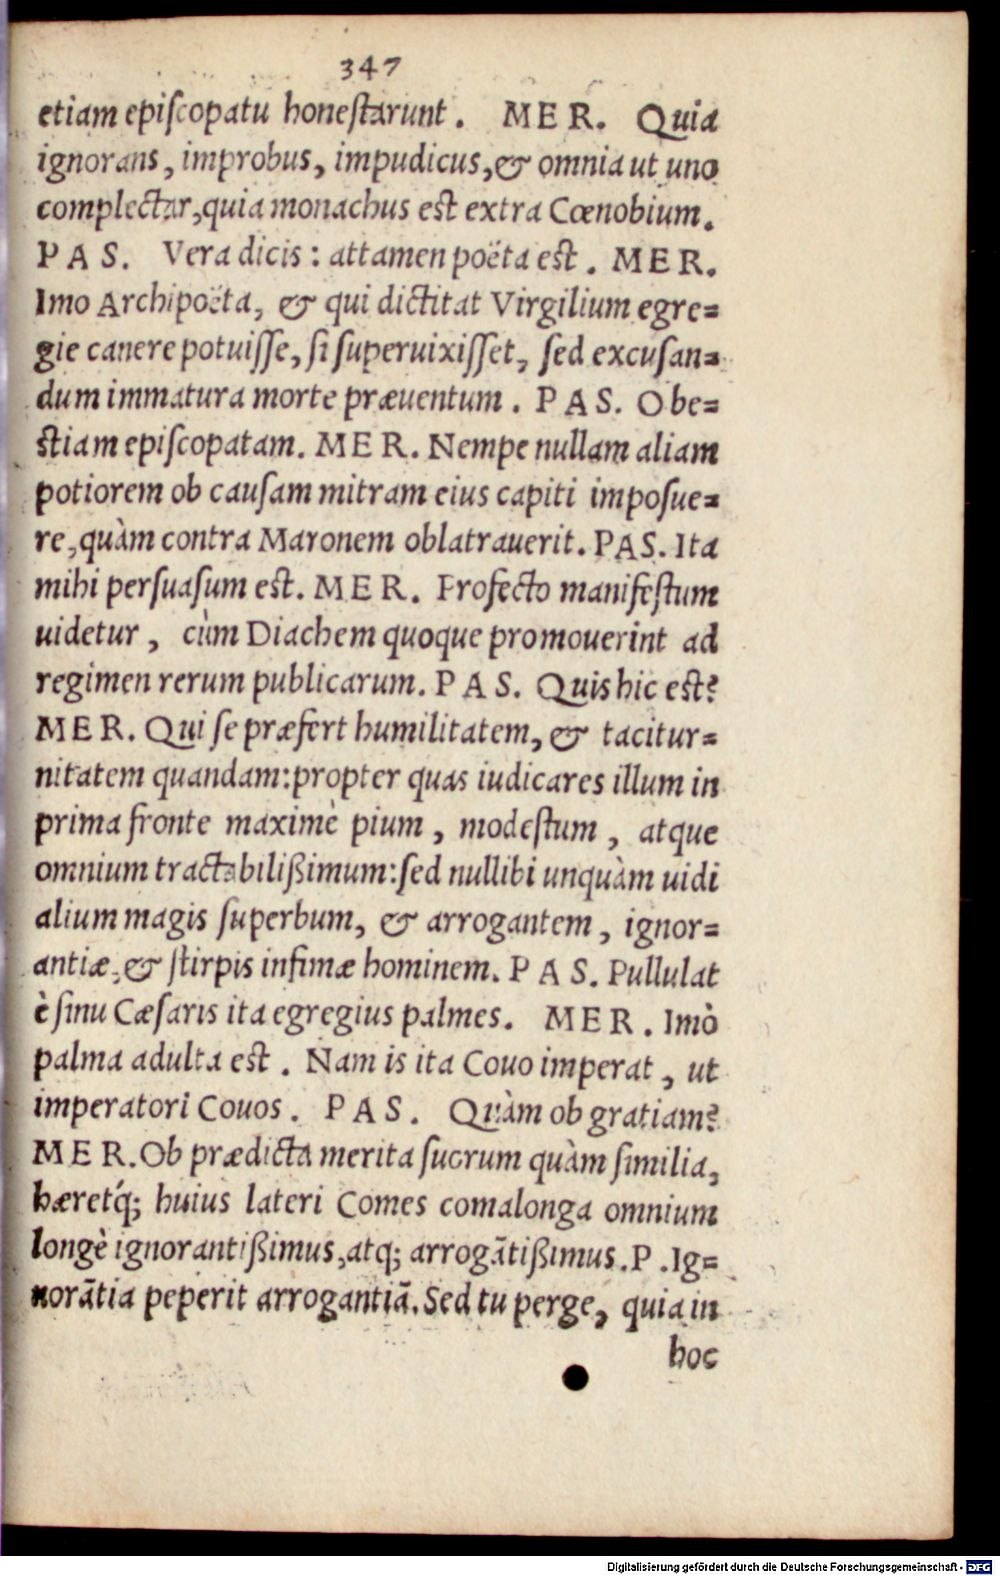 347
etiam epiſcopatu honeſtarunt. MER. Quia
ignorans, improbus, impudicus, & omnia ut uno
complectar, quia monachus est extra Cœnobium.
PAS. Vera dicis: attamen poëta est. MER.
Imo Archipoëta, & qui dictitat Virgilium egre=
gie canere potuiſſe, ſi ſuperuixiſſet, ſed excuſan=
dum immatura morte præuentum. PAS. O be=
stiam epiſcopatam. MER. Nempe nullam aliam
potiorem ob cauſam mitram eius capiti impoſue=
re, quàm contra Maronem oblatrauerit. PAS. Ita
mihi perſuaſum est. MER. Profecto manifeſtum
uidetur, cùm Diachem quoque promouerint ad
regimen rerum publicarum. PAS. Quis hic est?
MER. Qui ſe præfert humilitatem, & tacitur=
nitatem quandam: propter quas iudicares illum in
prima fronte maximè pium, modeſtum, atque
omnium tractabilißimum: ſed nullibi unquàm uidi
alium magis ſuperbum, & arrogantem, ignor=
antiæ, & ſtirpis infimæ hominem. PAS. Pullulat
è ſinu Cæſaris ita egregius palmes. MER. Imò
palma adulta est. Nam is ita Couo imperat, ut
imperatori Couos. PAS. Quàm ob gratiam?
MER. Ob prædicta merita ſuorum quàm ſimilia,
hæretq́; huius lateri Comes comalonga omnium
longè ignorantißimus, atq; arrogãtißimus. P. Ig=
norãtia peperit arrogantiã. Sed tu perge, quia in
hoc
Digitalisierung gefördert durch die Deutsche Forschungsgemeinschaft - DFG